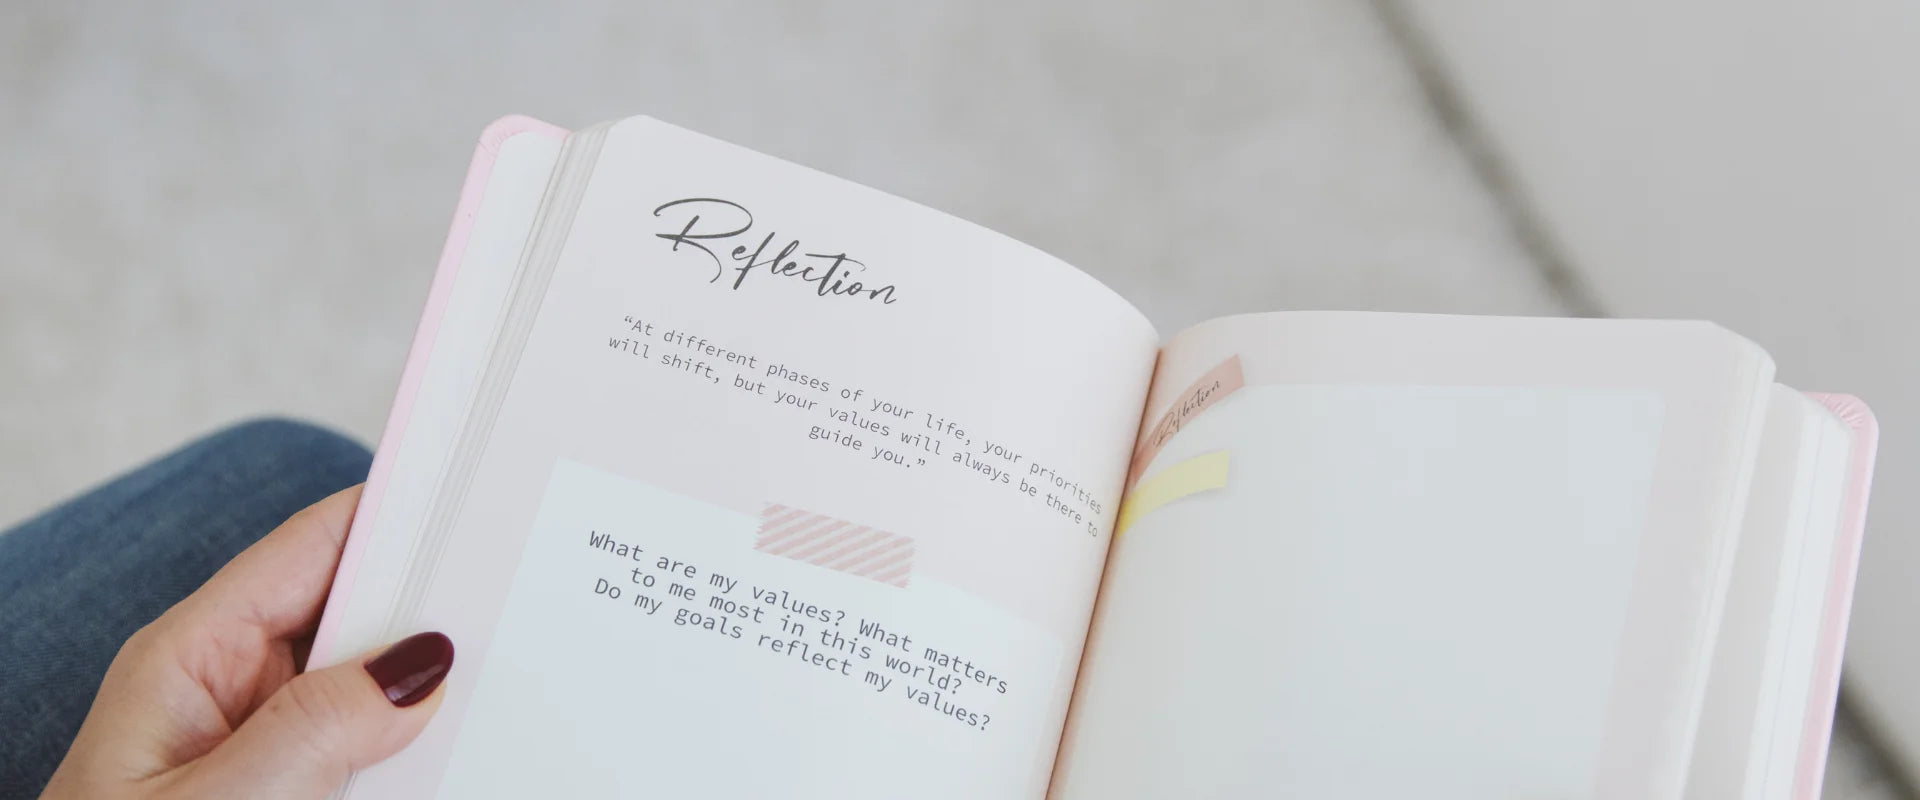 Reflection
“At different phases of your life, your priorities
will shift, but your values will always be there to
guide you.”
What are my values? What matters
to me most in this world?
Do my goals reflect my values?
Reflection